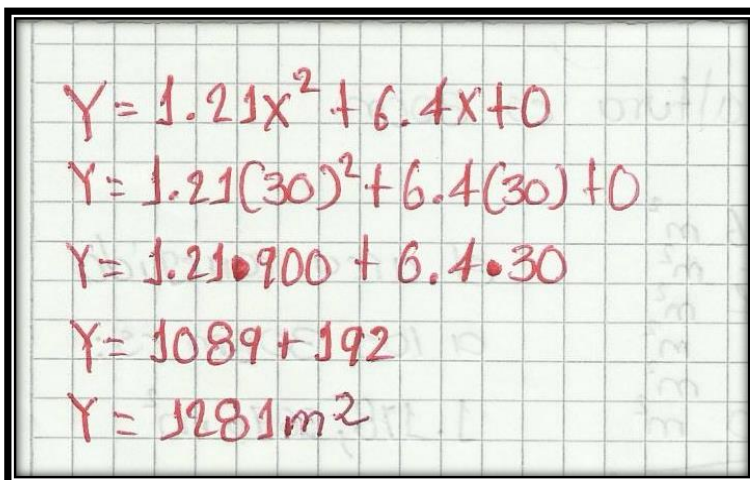 Y = 1.21x² + 6.4x + 0
Y = 1.21(30)² + 6.4(30) + 0
Y = 1.21•900 + 6.4•30
Y = 1089 + 192
Y = 1281 m²